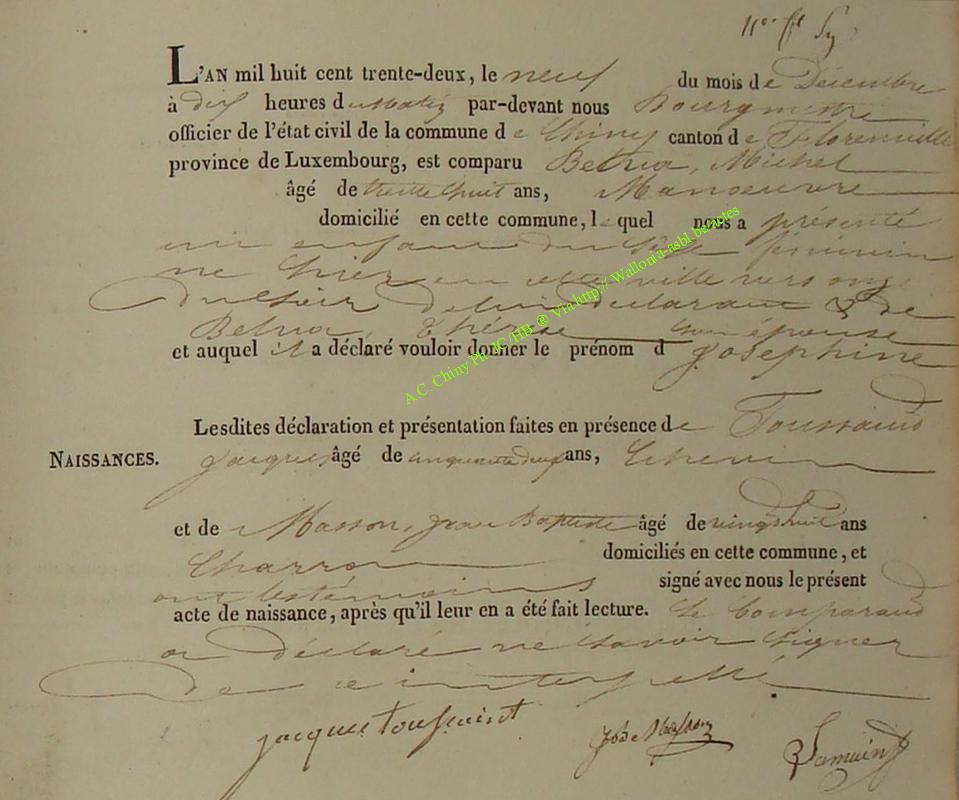 L'AN mil huit cent trente-deux, le neuf du mois de Décembre
à dix heures du matin par-devant nous Bourgmestre
officier de l'état civil de la commune de Chiny canton de Florenville
province de Luxembourg, est comparu Michel
âgé de trente huit ans, Manoeuvre
domicilié en cette commune, lequel nous a présenté
un enfant du sexe feminin
né hier en cette ville vers onze
du soir de lui déclarant & de
Thérèse son épouse
et auquel il a déclaré vouloir donner le prénom d Josephine
Lesdites déclaration et présentation faites en présence de Toussaind
NAISSANCES.
Jacques âgé de cinquante deux ans,
et de Masson, Jean Baptiste âgé de vingt huit ans
Charron domiciliés en cette commune, et
ont les témoins signé avec nous le présent
acte de naissance, après qu'il leur en a été fait lecture. Le Comparand
a déclaré ne savoir signer
de ce interpellé
jacques toussaint
A.C. Chiny Ph. JC/HB @ Via http:// Wallonia-asbl.be/actes